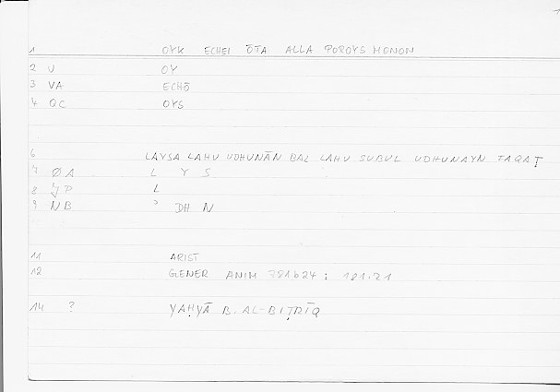 1 OYK ECHEI ŌTA ALLA POROYS MONON
2 V OY
3 VA ECHŌ
4 QC OYS
6 LAYSA LAHU UDHUNĀN BAL LAHU SUBUL UDHUNAYN ṮAQAṬ
7 ØA L Y S
8 L
9 NB ʾ DH N
11 ARIST
12 GENER ANIM 781b24 : 181.21
14 ? YAḤYĀ B. AL-BIṬRĪQ